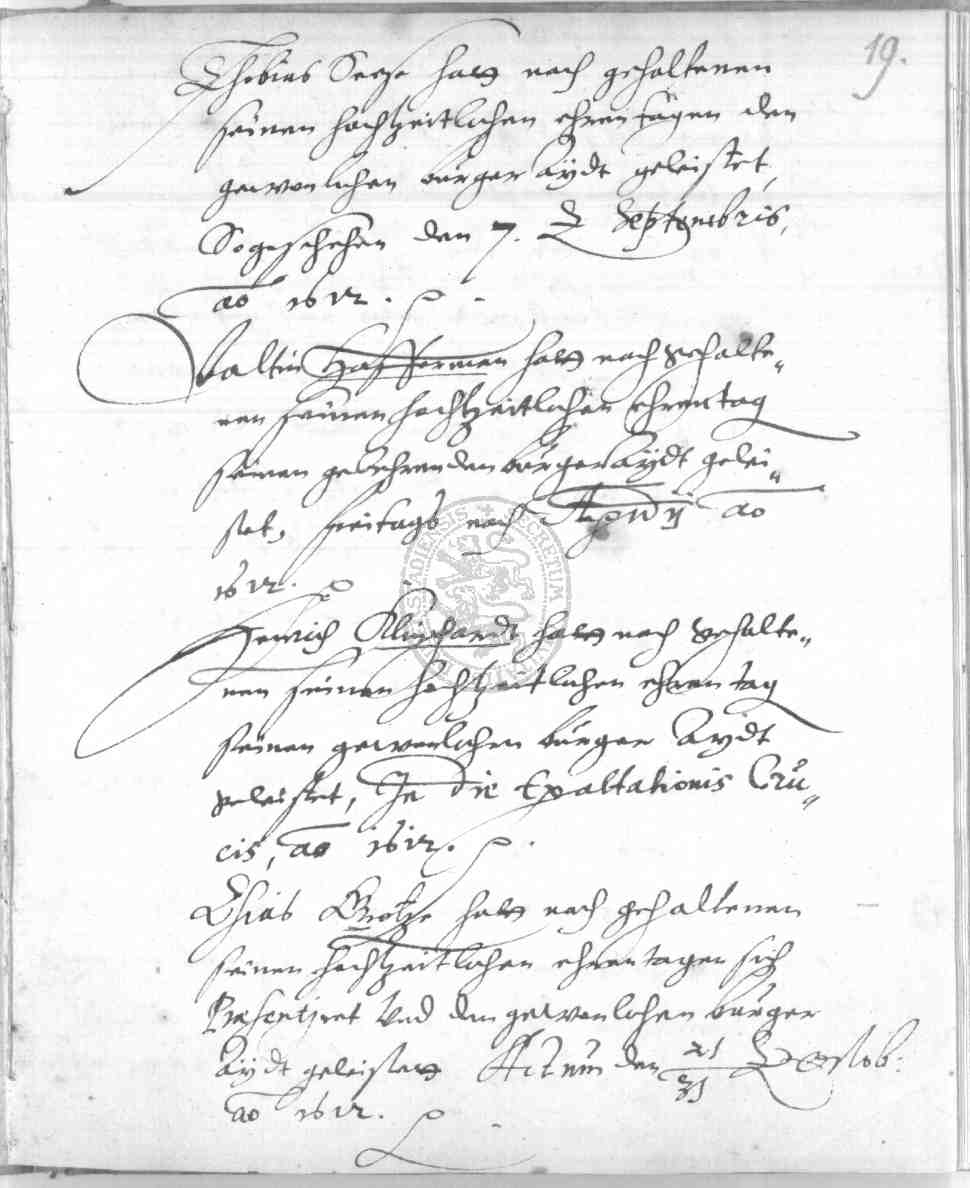 19.
Thobias Seese hatt nach gehaltenen
seinen hochtzeitlichen ehren tagen den
gewonlichen bürger aydt geleistet,
So geschehen den 7. Septembris,
ao 1612.
Valtin Hafferman hatt nach gehalte„
nen seinen hochtzeitlichen ehren tag
seinen gebührenden bürger aydt gelei„
stet, freitags nach ao
1612.
Heinrich hatt nach gehalte„
nen seinen hochtzeitlichen ehren tag
seinen gewonlichen bürger Aydt
geleistet, In die Exaltationis Cru„
cis, ao 1612.
hatt nach gehaltenen
seinen hochtzeitlichen ehren tagen sich
Præsentiret Und den gewonlichen bürger
aydt geleistett Actum den 21/31 Octob:
ao 1612.
SECRETUM